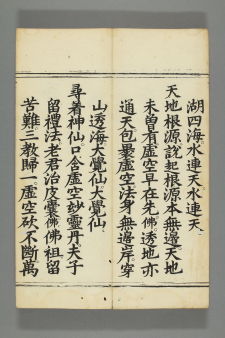 湖四海水連天水連天
天地根源說起根源本無邊天地
未曽有虛空早在先佛透地亦
通天包裹虛空法身無邊岸穿
山透海大覺仙大覺仙
尋着神仙口含虛空妙靈丹夫子
留禮法老君治皮囊佛佛祖留
苦難三教歸一虛空砍不斷萬